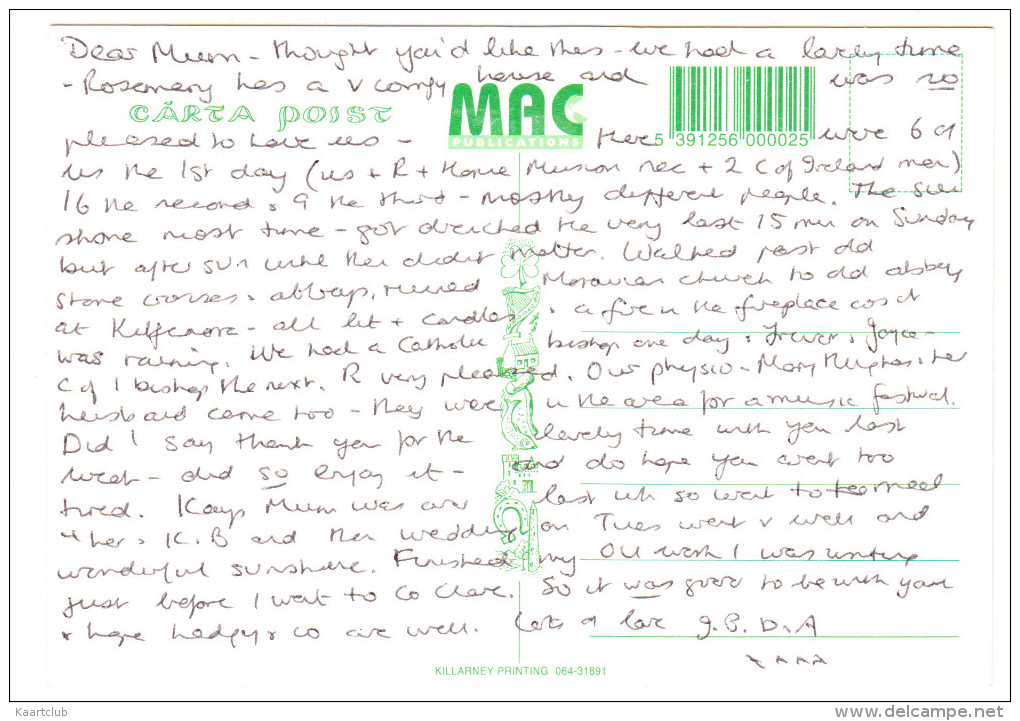 Dear Mum - thought you'd like this - we had a lovely time
- Rosemary has a v comfy house and was so
CÁRTA POIST
MAC
PUBLICATIONS
5 391256 000025
pleased to have us - there were 6 of
us the 1st day (us + R + Home Mission sec + 2 C of Ireland men)
16 the second & 9 the third - mostly different people. The sun
shone most time - got drenched the very last 15 min on Sunday
but after sun until then didnt matter. Walked past old
stone crosses, abbeys, ruined Moravian church to old abbey
at Kilfenora - all lit + candles & a fire in the fireplace cos it
was raining. We had a Catholic bishop one day & Trevor & Joyce -
C of I bishop the next. R very pleased. Our physio - Mary Hughes & her
husband came too - they were in the area for a music festival.
Did I say thank you for the lovely time with you last
week - did so enjoy it - and do hope you arent too
tired. Kays Mum was over last wk so went to
her & K. B and then wedding on Tues went v well and
wonderful sunshine. Finished my OU work I was writing
just before I went to Co Clare. So it was good to be with you
& hope Hedgy & co are well. Lots of love J. B. D. A
xxxx
KILLARNEY PRINTING 064-31891
Kaartclub
www.delcampe.net